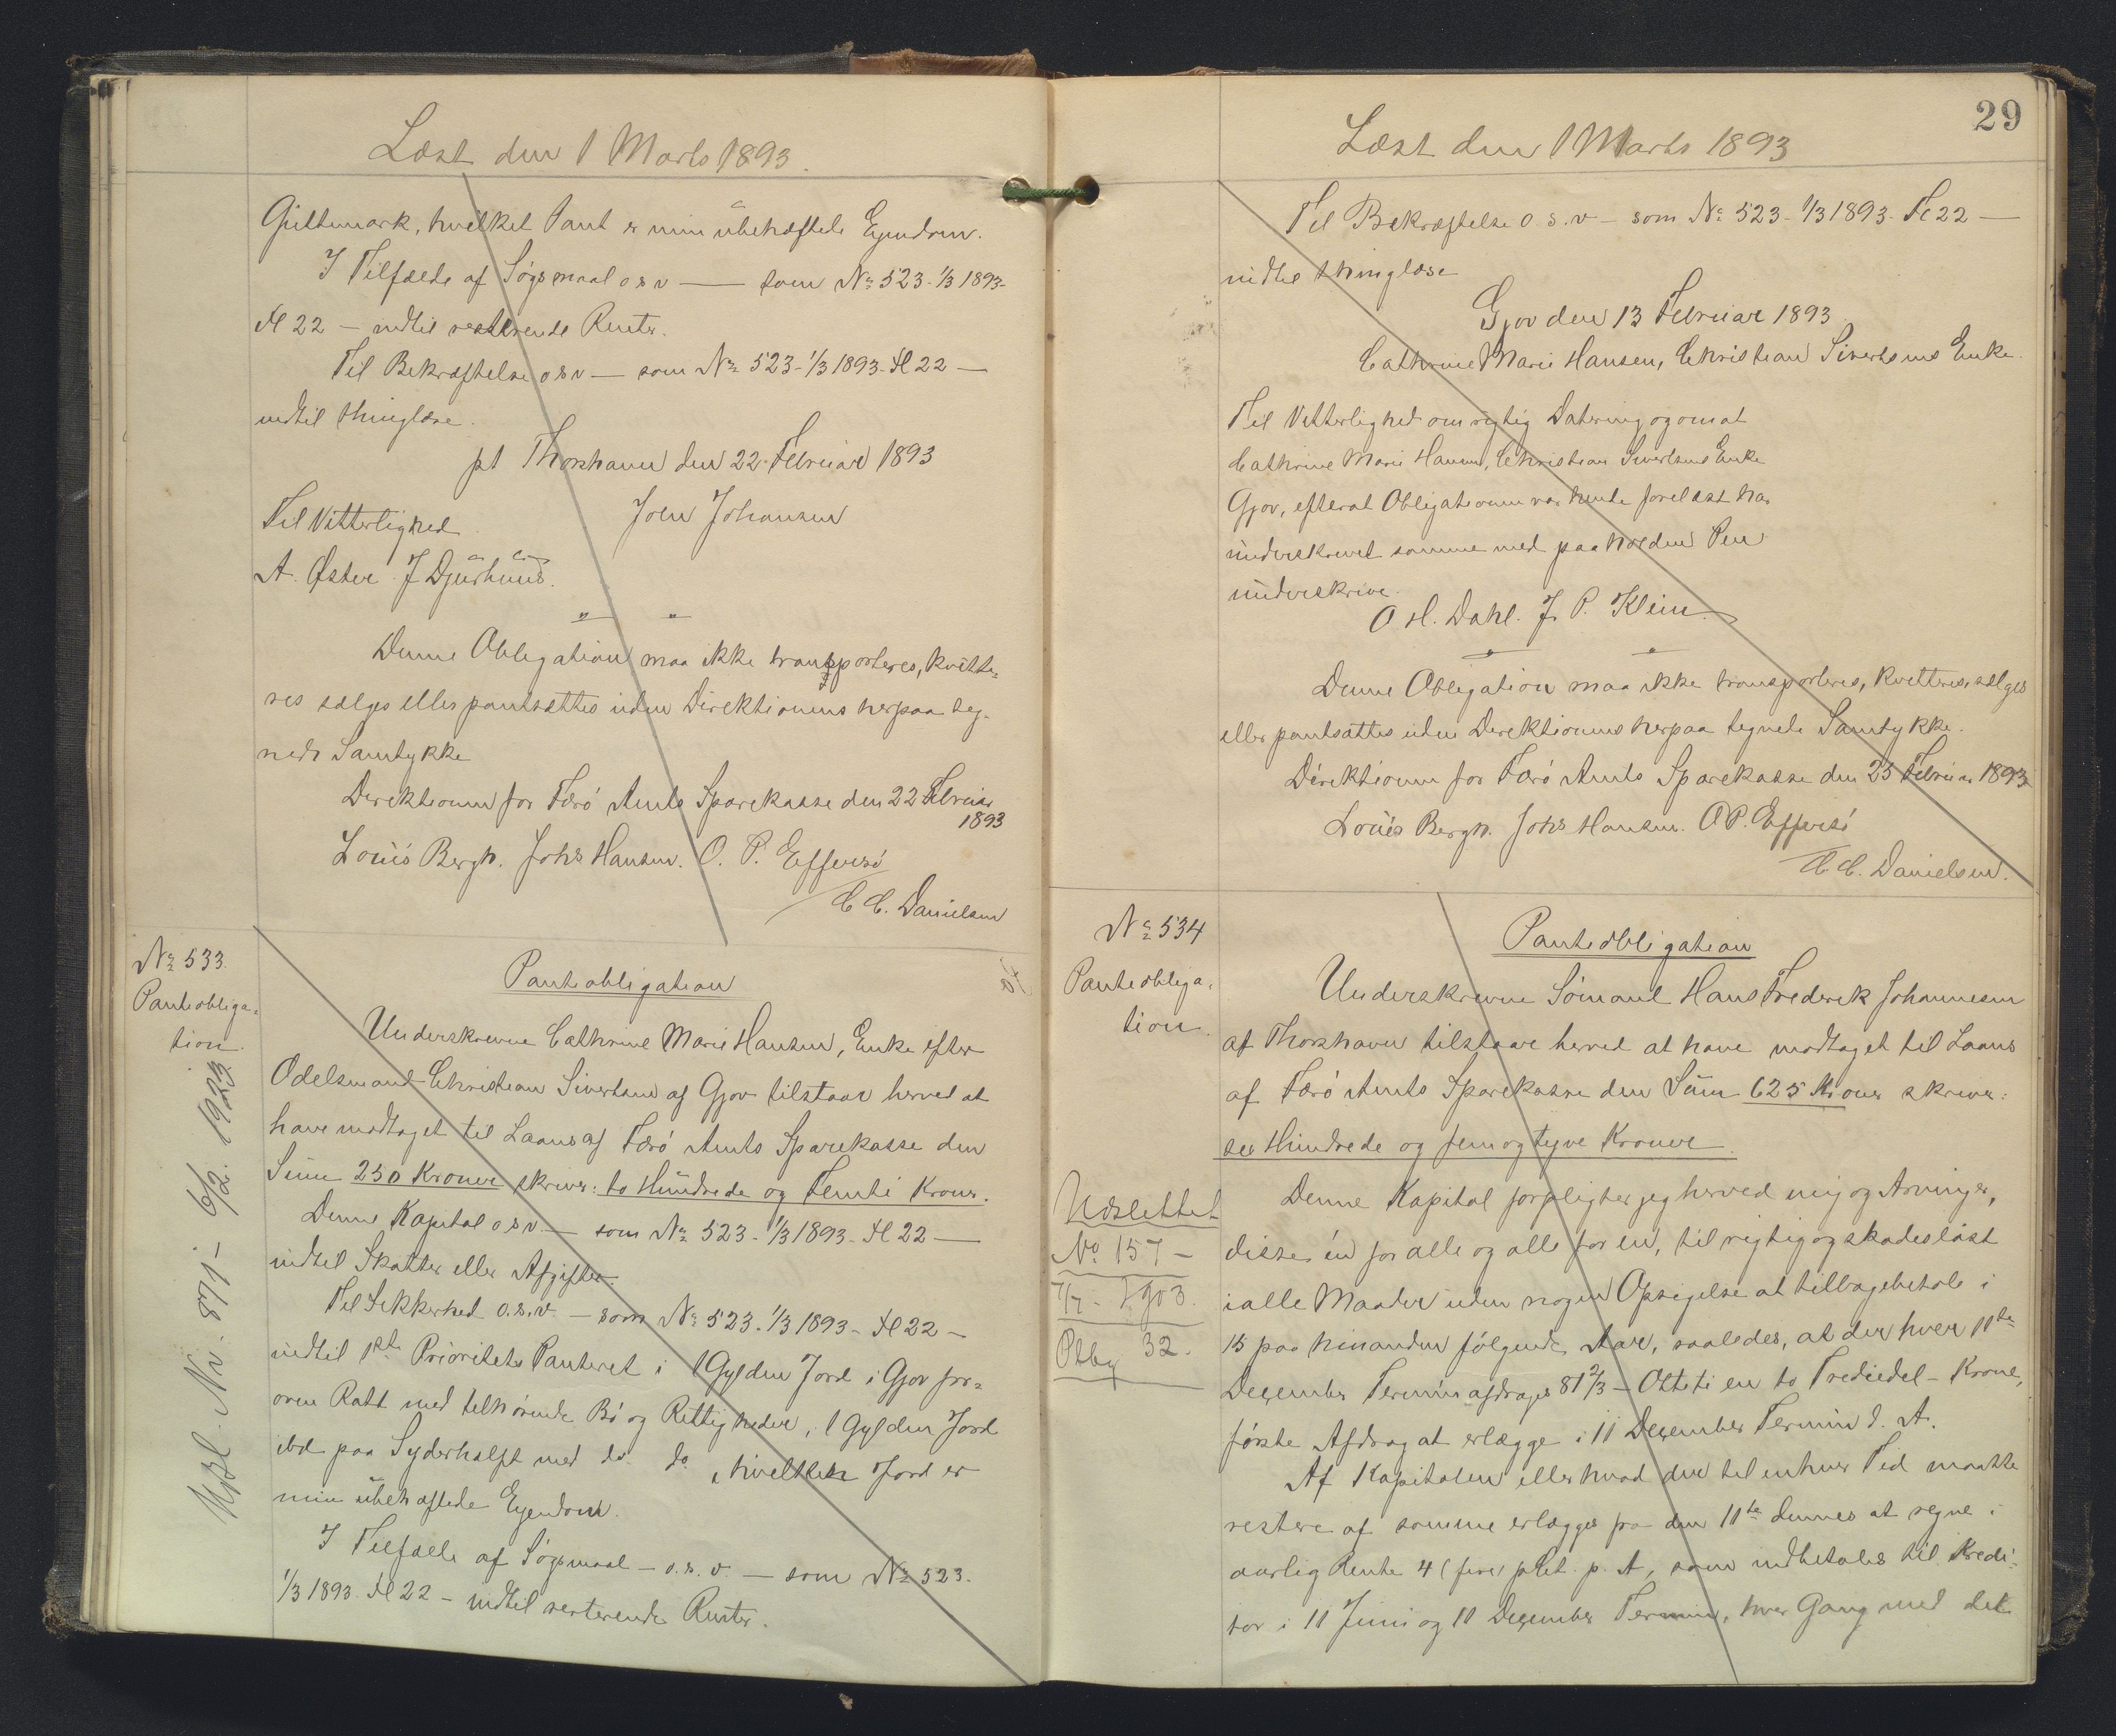 Læst den 1 Marts 1893.
Gilttemark, hvilket Pant er min übehæftede Ejendom.
I Tilfælde af Søgsmaal o s v — som No 523-1/3 1893-
Fl 22 — indtil resterende Renter.
Til Bekræftelse o s v — som No 523-1/3 1893-Fl 22 —
indtil thinglæse.
pt Thorshavn den 22 Februar 1893
Joen Johansen
Til Vitterlighed
A. Øster J Djurhuus.
" "
Denne Obligation maa ikke transporteres, kvitte=
res sælges eller pantsættes uden Direktionens herpaa teg-
nede Samtykke
Direktionen for Færö Amts Sparekasse den 22 Februar
1893
Louis Bergh. Johs Hansen. O. P. Effersö
C C. Danielsen
No 533.
Panteobliga=
tion.
Udsl. Nr. 871- 6/2. 1923
Panteobligation
Underskrevne Cathrine Marie Hansen, Enke efter
Odelsmand Christian Sivertsen af Gjov tilstaar herved at
have modtaget til Laans af Færö Amts Sparekasse den
Sum 250 Kroner skriver: to Hundrede og Femti Kroner.
Denne Kapital o s v — som No 523-1/3 1893-Fl 22 —
indtil Skatter eller Afgifter.
Til Sikkerhed o.s.v. — som No 523-1/3 1893- Fl 22 —
indtil 1ste Prioritets Panteret i 1 Gylden Jord i Gjov for=
oven Ratt med tilhörende Bö og Rettigheder, 1 Gylden Jord
ibd paa Syderhalft med do. do, hvilken Jord er
min übehæftede Ejendom.
I Tilfælde af Søgsmaal — o. s. v. — som No 523.
1/3 1893. Fl 22 — indtil resterende Renter.
29
Læst den 1 Marts 1893
Til Bekræftelse o s. v — som No 523-1/3 1893. Fl 22 —
indtil thinglæse
Gjov den 13 Februar 1893
Cathrine Marie Hansen, Christian Sivertsens Enke.
Til Vitterlighed om rigtig Datering og om at
Cathrine Marie Hansen, Christian Sivertsens Enke
Gjov, efterat Obligationen var hende forelæst har
underskrevet samme med paaholden Pen
underskrive.
O H. Dahl. J. P. Klein.
Denne Obligation maa ikke transporteres, kvitteres, sælges
eller pantsættes uden Direktionens herpaa tegnede Samtykke.
Direktionen for Færö Amts Sparekasse den 25 Februar 1893
Louis Bergh. Johs Hansen. O P. Effersö
C C. Danielsen.
No 534
Panteobliga=
tion.
Udslettet
No 157 -
7/7 - 1903.
Ptbg 32.
Panteobligation
Underskrevne Sömand Hans Frederik Johannesen
af Thorshavn tilstaar herved at have modtaget til Laans
af Færö Amts Sparekasse den Sum 625 Kroner skriver:
sex Hundrede og fem og tyve Kroner.
Denne Kapital forpligter jeg herved mig og Arvinger,
disse én for alle og alle for en, til rigtig og skadeslöst
i alle Maader uden nogen Opsigelse at tilbagebetale i
15 paa hinanden fölgende Aar, saaledes, at der hver 11te
December Termin afdrages 81 2/3 — Otteti en to Trediedel — Krone,
förste Afdrag at erlægge i 11 December Termin d. A.
Af Kapitalen eller hvad der til enhver Tid maatte
restere af samme erlægges fra den 11te dennes at regne i
aarlig Rente 4 (fire) pCt. p. A, som indbetales til Kredi=
tor i 11 Juni og 11 December Termin, hver Gang med det